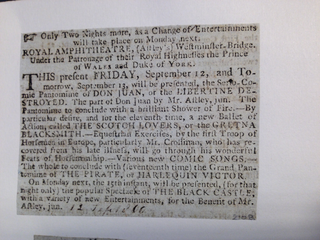 Only Two Nights more, as a Change of Entertainments
will take place on Monday next.
ROYAL AMPHITHEATRE, (Astley's) Westminster-Bridge.
Under the Patronage of their Royal Highnesses the Prince
of WALES and DUKE of YORK.
THIS present FRIDAY, September 12, and To-
morrow, September 13, will be presented, the Serio-Co-
mic Pantomime of DON JUAN, or the LIBERTINE DE-
STROYED. The part of Don Juan by Mr. Astley, jun. The
Pantomime to conclude with a brilliant Shower of Fire.—By
particular desire, and for the eleventh time, a new Ballet of
Action, called THE SCOTCH LOVERS, or the GRETNA
BLACKSMITH.—Equestrian Exercises, by the first Troop of
Horsemen in Europe, particularly Mr. Crossman, who has re-
covered from his late illness, will go through his wonderful
Feats of Horsemanship.—Various new COMIC SONGS.—
The whole to conclude with (seventeenth time) the Grand Pan-
tomime of THE PIRATE, or HARLEQUIN VICTOR.
On Monday next, the 15th instant, will be presented, (for that
night only) the popular Spectacle of THE BLACK CASTLE;
with a variety of new Entertainments, for the Benefit of Mr.
Astley, jun. 12 Sept